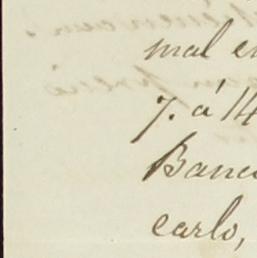 mal e
7. á 14
Banc
carlo,